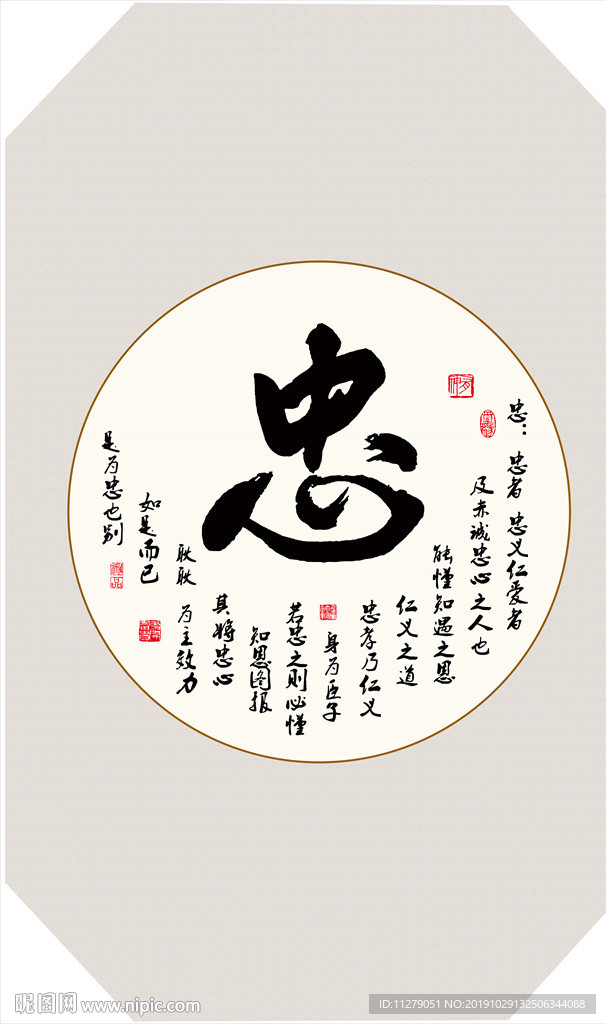 忠
忠：忠者 忠义仁爱者
及赤诚忠心之人也
能懂知遇之恩
仁义之道
忠孝乃仁义
身为臣子
若忠之则必懂
知恩图报
其将忠心
耿耿 为主效力
如是而已
是为忠也别
昵图网 www.nipic.com
ID:11279051 NO:20191029132506344088